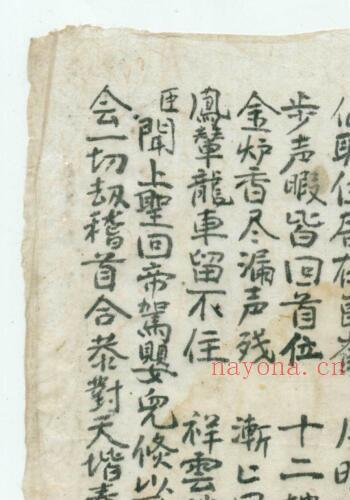 步声暇皆回首位 十二
金炉香尽漏声残 漸
鳳輦龍車留不住 祥雲
臣聞上聖回帝駕嬰兒倏以
会一切劫稽首合恭對天堦
nayona.cn